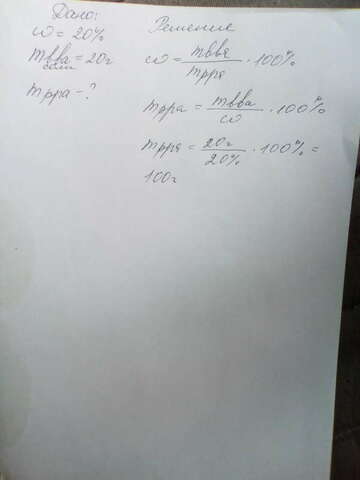 Дано:
ω = 20%
mвва = 20г
соли
mрра - ?
Решение
ω = mввя / mрря · 100%
mрра = mвва / ω · 100%
mрря = 20г / 20% · 100% =
100г